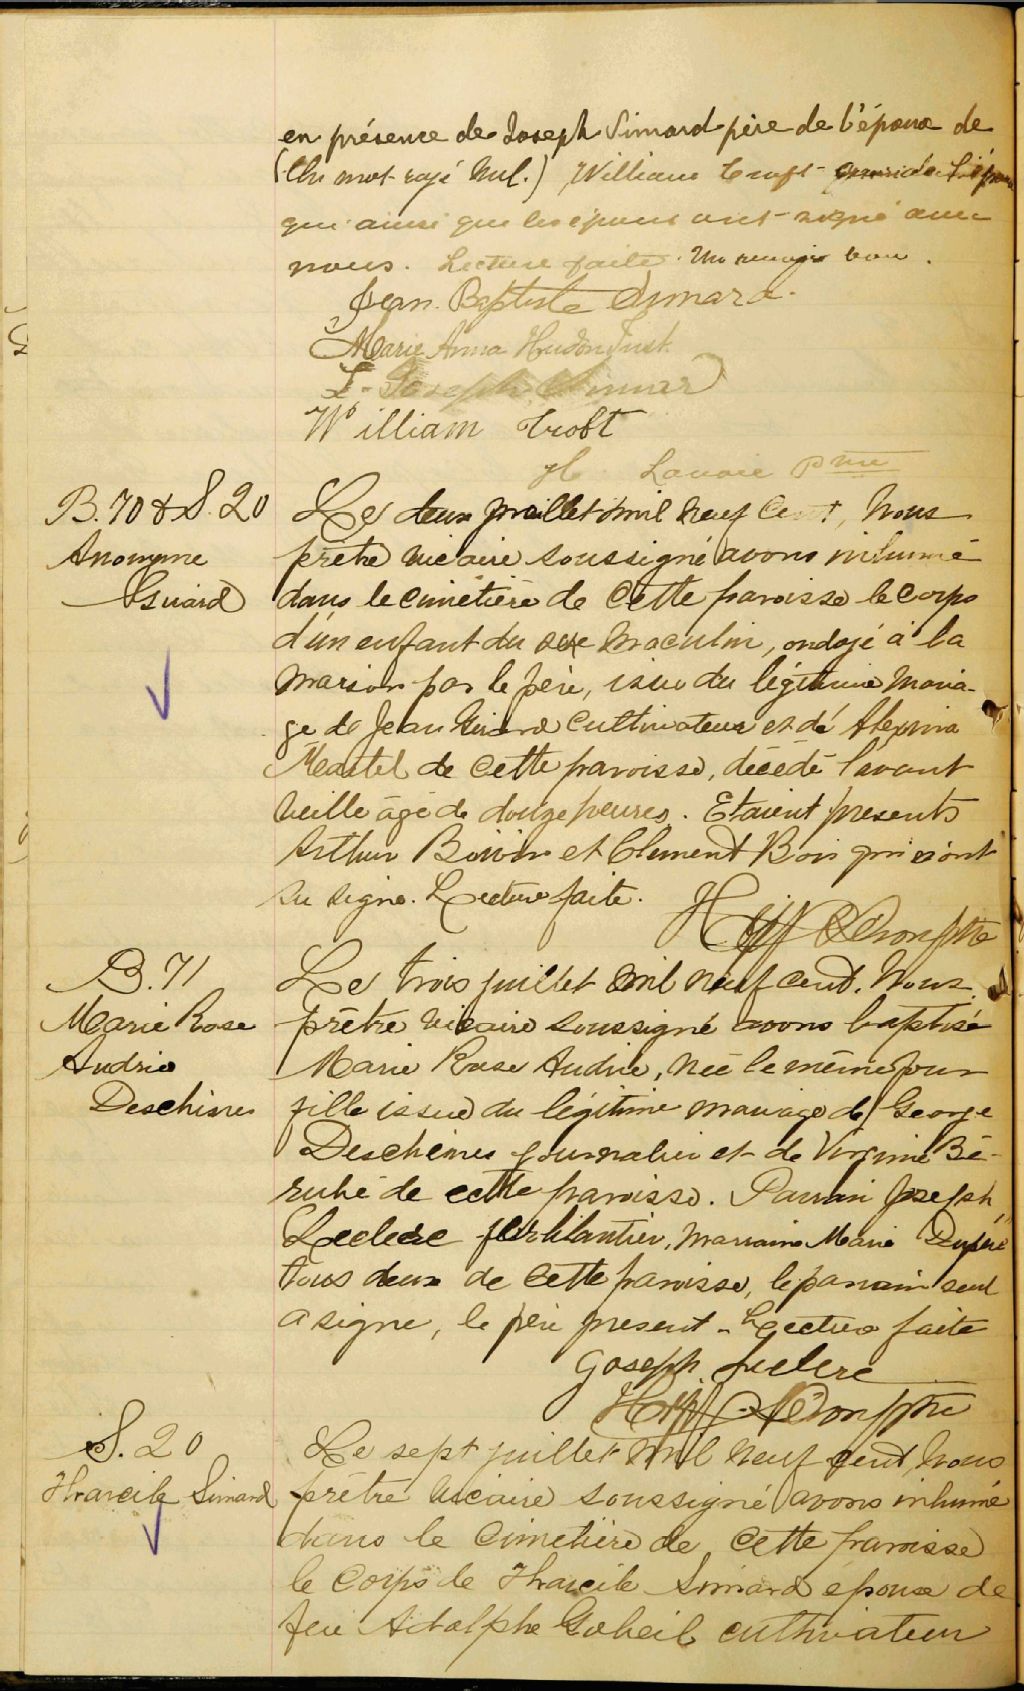 en présence de Joseph Simard père de l'époux de
(Un mot rayé nul.) William Croft
qui ainsi que les époux ont signé avec
nous. Lecture faite. Un renvoi bon.
Jean Baptiste Simard
Marie Anna Hudon
Joseph Simard
William Croft
H. Lavoie Ptre
B. 70 & S. 20
Anonyme
Guiard
Le deux juillet mil neuf cent, Nous
prêtre vicaire soussigné avons inhumé
dans le cimétière de cette paroisse le corps
d'un enfant du sexe masculin, ondoyé à la
maison par le père, issu du légitime maria-
ge de Jean cultivateur et de Alexina
Martel de cette paroisse, décédé l'avant
veille âgé de douze heures. Etaient presents
Arthur Boivin et Clement Bois qui n'ont
su signé. Lecture faite.
B. 71
Marie Rose
Audrie
Deschênes
Le trois juillet mil neuf cent, Nous
prêtre vicaire soussigné avons baptisé
Marie Rose Audrie, née le même jour
fille issue du légitime mariage de George
Deschênes journalier et de Virginie Bé-
rubé de cette paroisse. Parrain Joseph
Leclerc ferblantier, marraine Marie Dupéré
tous deux de cette paroisse, le parrain seul
a signé, le père present. Lecture faite
Joseph Leclerc
S. 20
Tharcile Simard
Le sept juillet mil neuf cent, Nous
prêtre vicaire soussigné avons inhumé
dans le cimetière de cette paroisse
le corps de Tharcile Simard épouse de
feu Adolphe Gobeil cultivateur